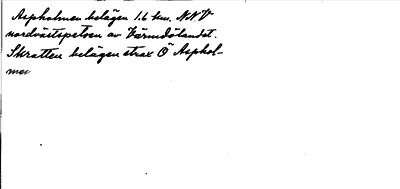 Aspholmen belägen 1.6 km. NNV
nordvästspetsen av Värmdölandet.
Skratten belägen strax Ö Asphol-
men